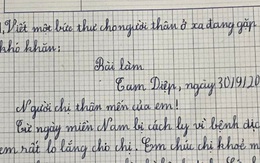 1, Viết một bức thư cho người thân ở xa đang gặp
khó khăn:
Bài làm
Tam Điệp, ngày 30/9/20
Người chị thân mến của em!
Từ ngày miền Nam bị cách ly vì bệnh dịc
em rất lo lắng cho chị. Em chúc chị khoẻ m